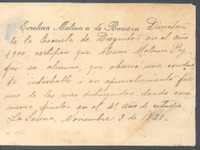 Evelina Molina v. de Barraza Directora
de la Escuela de Dieguitas en el año
1900 certifico que Marco Molinari
fue su alumno, que observó una conducta
intachable i su aprovechamiento fué
uno de los mas distinguidos dando sus
exámenes finales en el año de estudio
La Serena, Noviembre 3 de 1921.